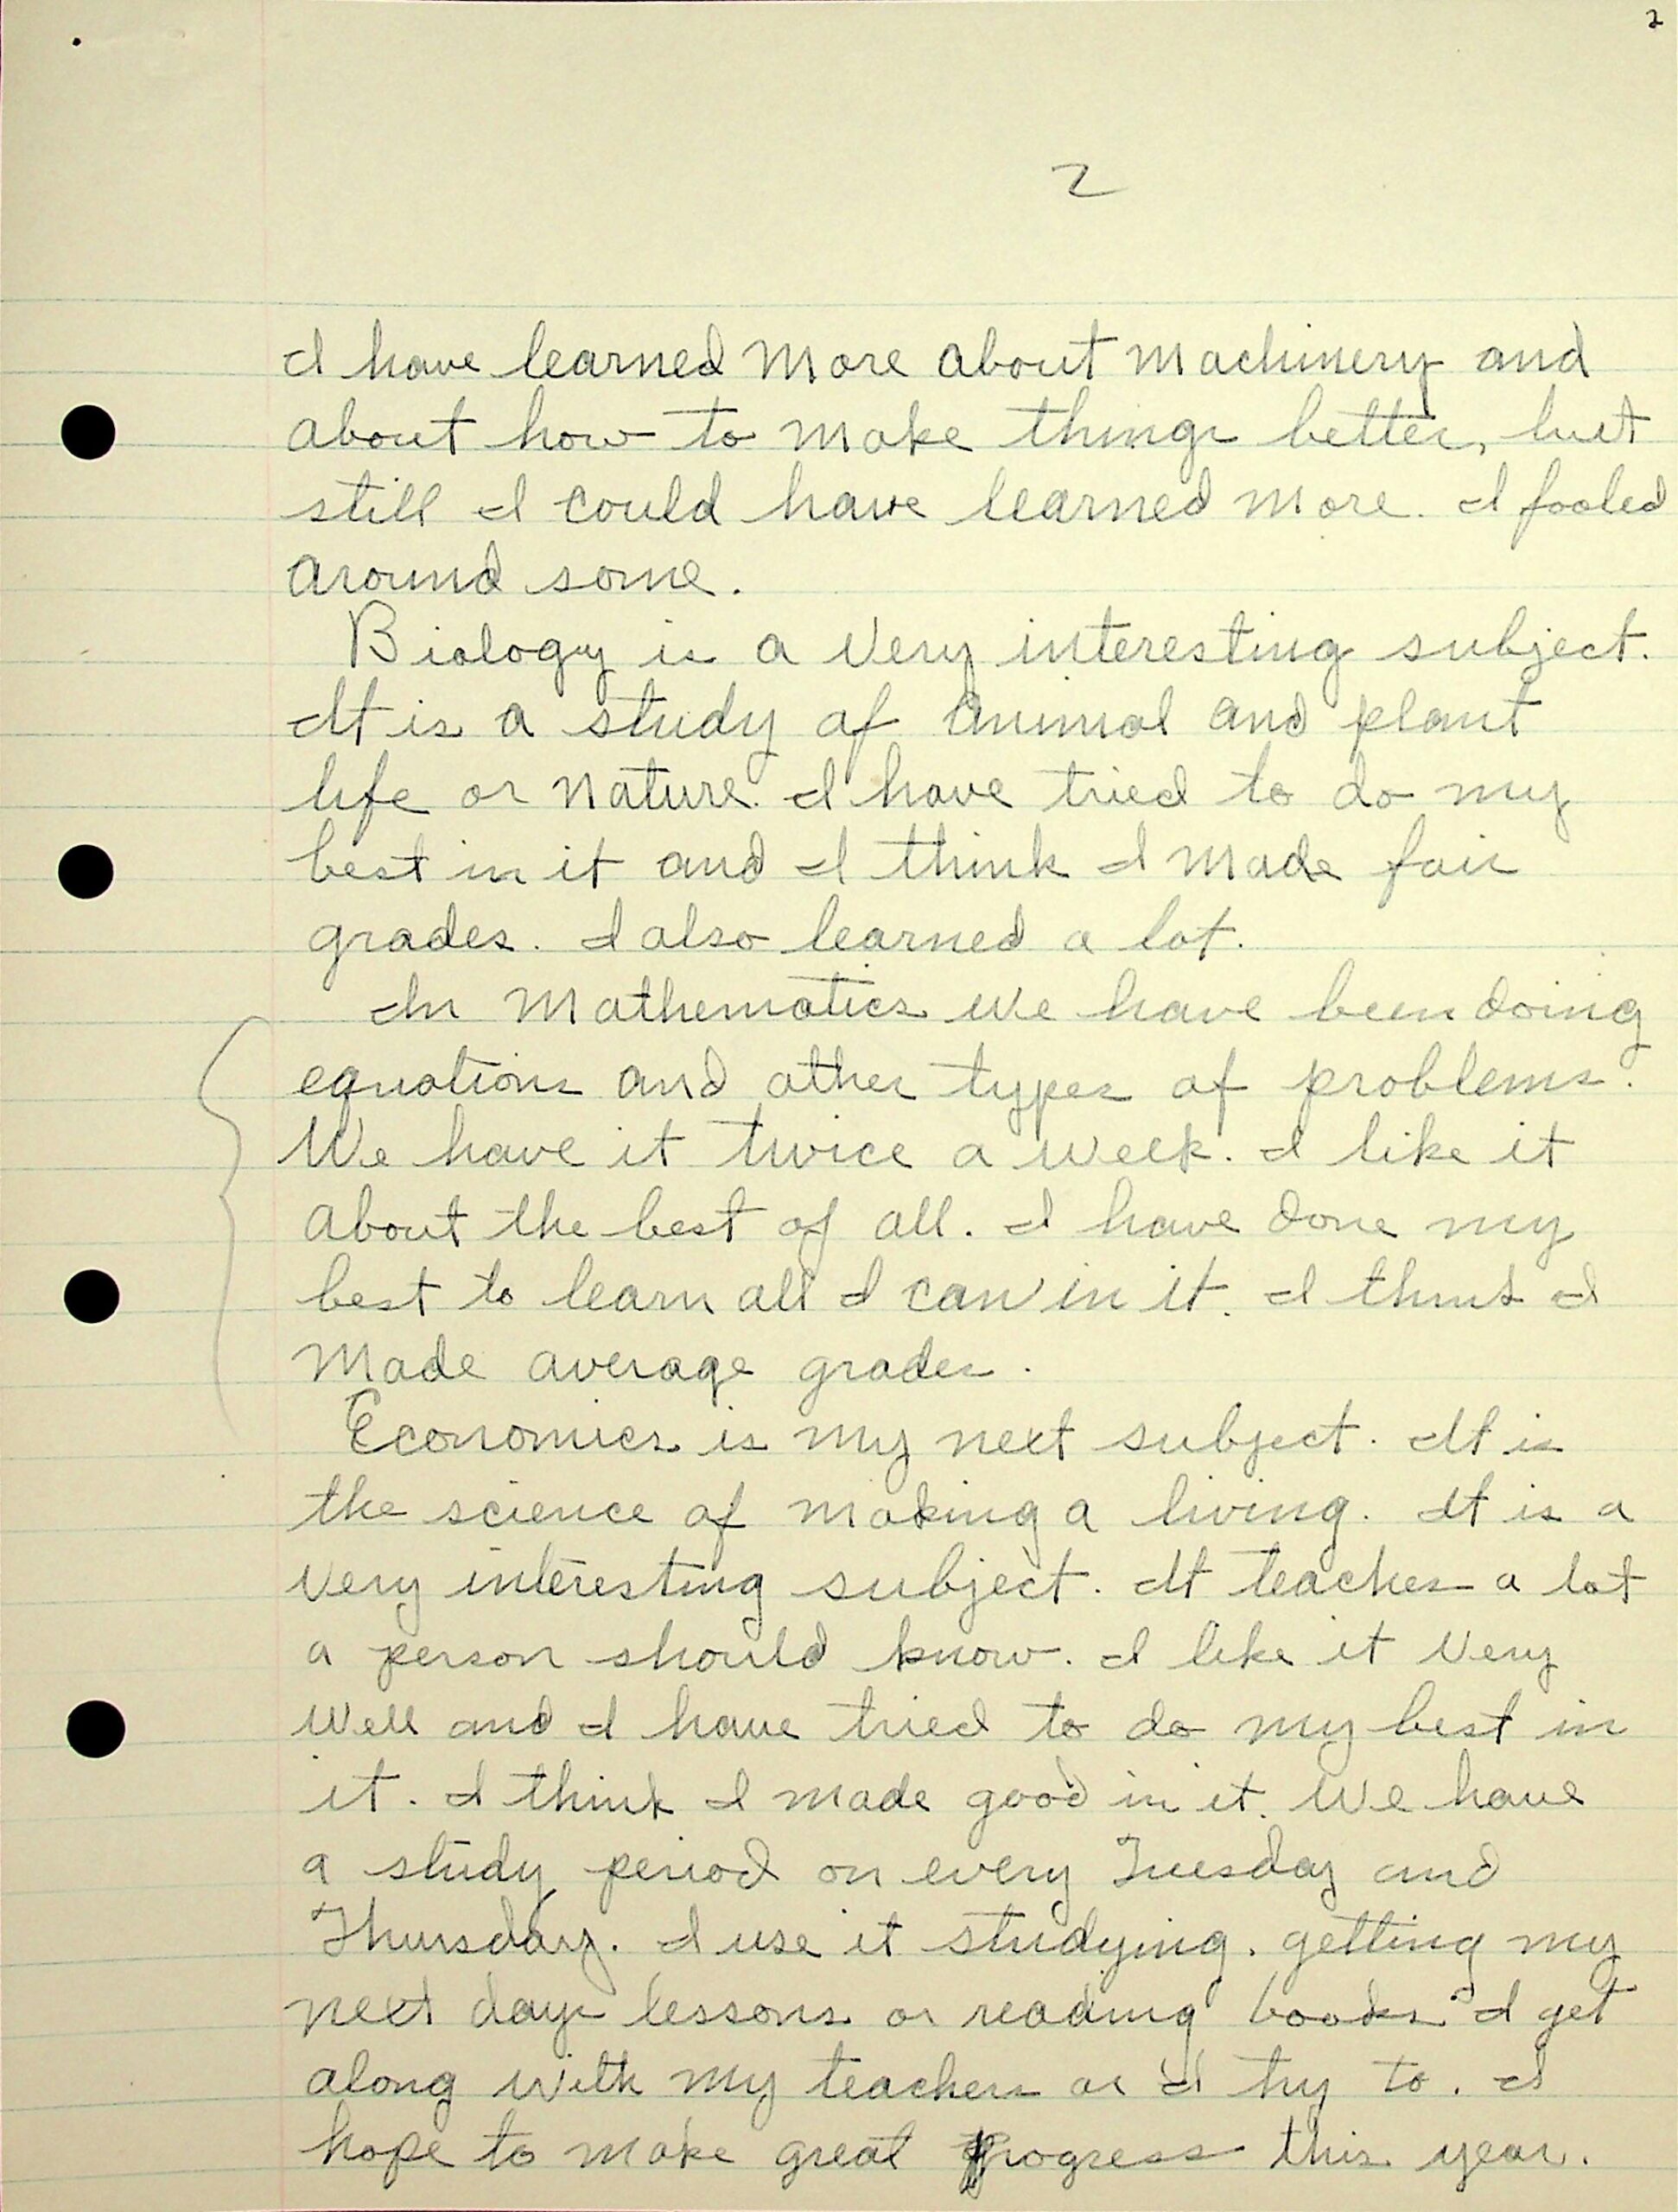 2
2
I have learned more about machinery and
about how to make things better, but
still I could have learned more. I fooled
around some.
Biology is a very interesting subject.
It is a study of animal and plant
life or nature. I have tried to do my
best in it and I think I made fair
grades. I also learned a lot.
In Mathematics we have been doing
equations and other types of problems.
We have it twice a week. I like it
about the best of all. I have done my
best to learn all I can in it. I think I
made average grades.
Economics is my next subject. It is
the science of making a living. It is a
very interesting subject. It teaches a lot
a person should know. I like it very
well and I have tried to do my best in
it. I think I made good in it. We have
a study period on every Tuesday and
Thursday. I use it studying. getting my
next days lessons or reading books. I get
along with my teachers as I try to. I
hope to make great progress this year.